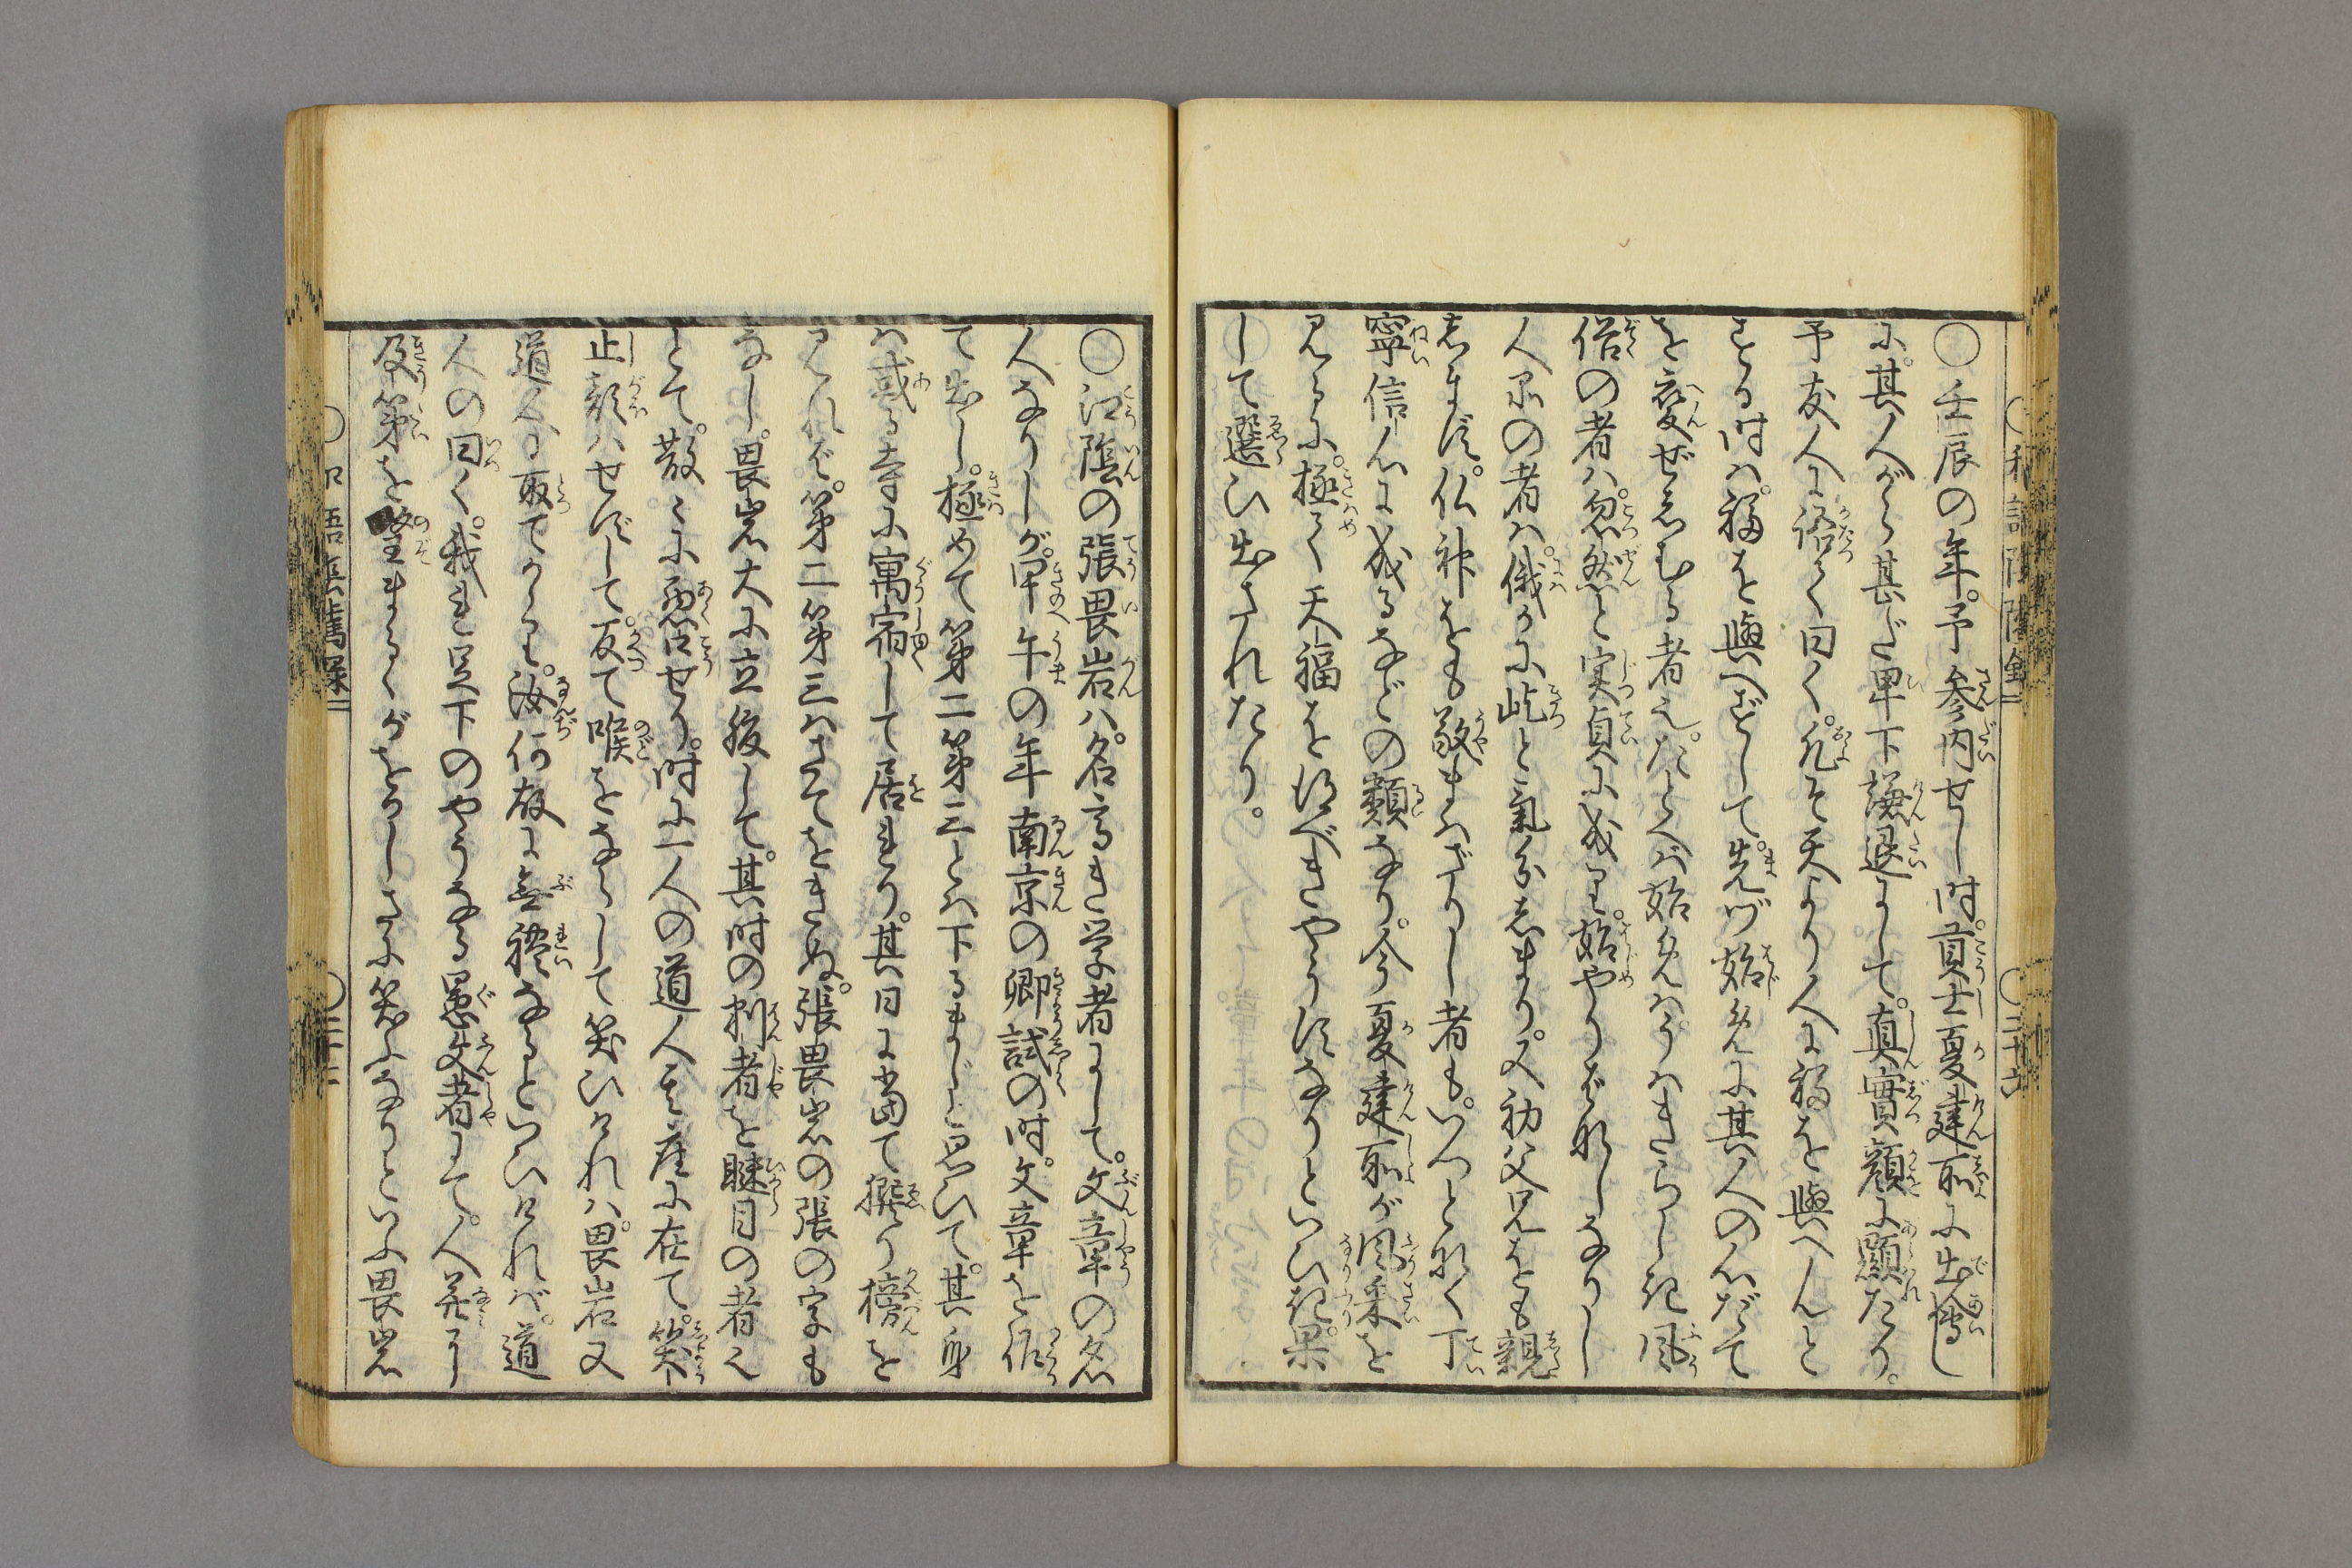 〇壬辰の年。予参内せし時。貢士夏建所に出會し
に。其人がら甚だ卑下謙退にして。真實顔に顕たり。
予友人に語つて曰く。凡そ天より人に福を與へんと
する時ハ。福を與へずして。先づ始めに其人の心だて
を変ぜしむる者也。たとへバ始めハうハきらしき風
俗の者ハ。忽然と実貞に成り。始やりばなしなりし
人品の者ハ。俄かに屹と氣分しまり。又初父兄をも親
しまず。仏神をも敬まハざりし者も。いつとなく丁
寧信心に成るなどの類なり。今夏建所が風采を
見るに。極て天福を得べきやうすなりといひ〓。果
して選ひ出されたり。
〇江陰の張畏岩ハ。名高き学者にして。文章の名
人なりしが。甲午の年南京の郷試の時。文章を作
て出し。極めて第二第三とハ下るまじと思ひて。其身
ハ或る寺に寓宿して居まり。其日に当て撰り榜を
見れバ。第二第三ハさてをきぬ。張畏岩の張の字も
なし。畏岩大に立腹して。其時の判者を瞇目の者也
とて。散々に悪口せり。時に一人の道人其座に在て。笑
止顔ハせずして。反て喉をならして笑ひけれハ。畏岩又
道人に取てかゝり。汝何故に無禮なるといひけれバ。道
人の曰く。我は足下のやうなる愚文者にて。人並に
及第を望まるゝがをかしさに笑ふなりといふ畏岩